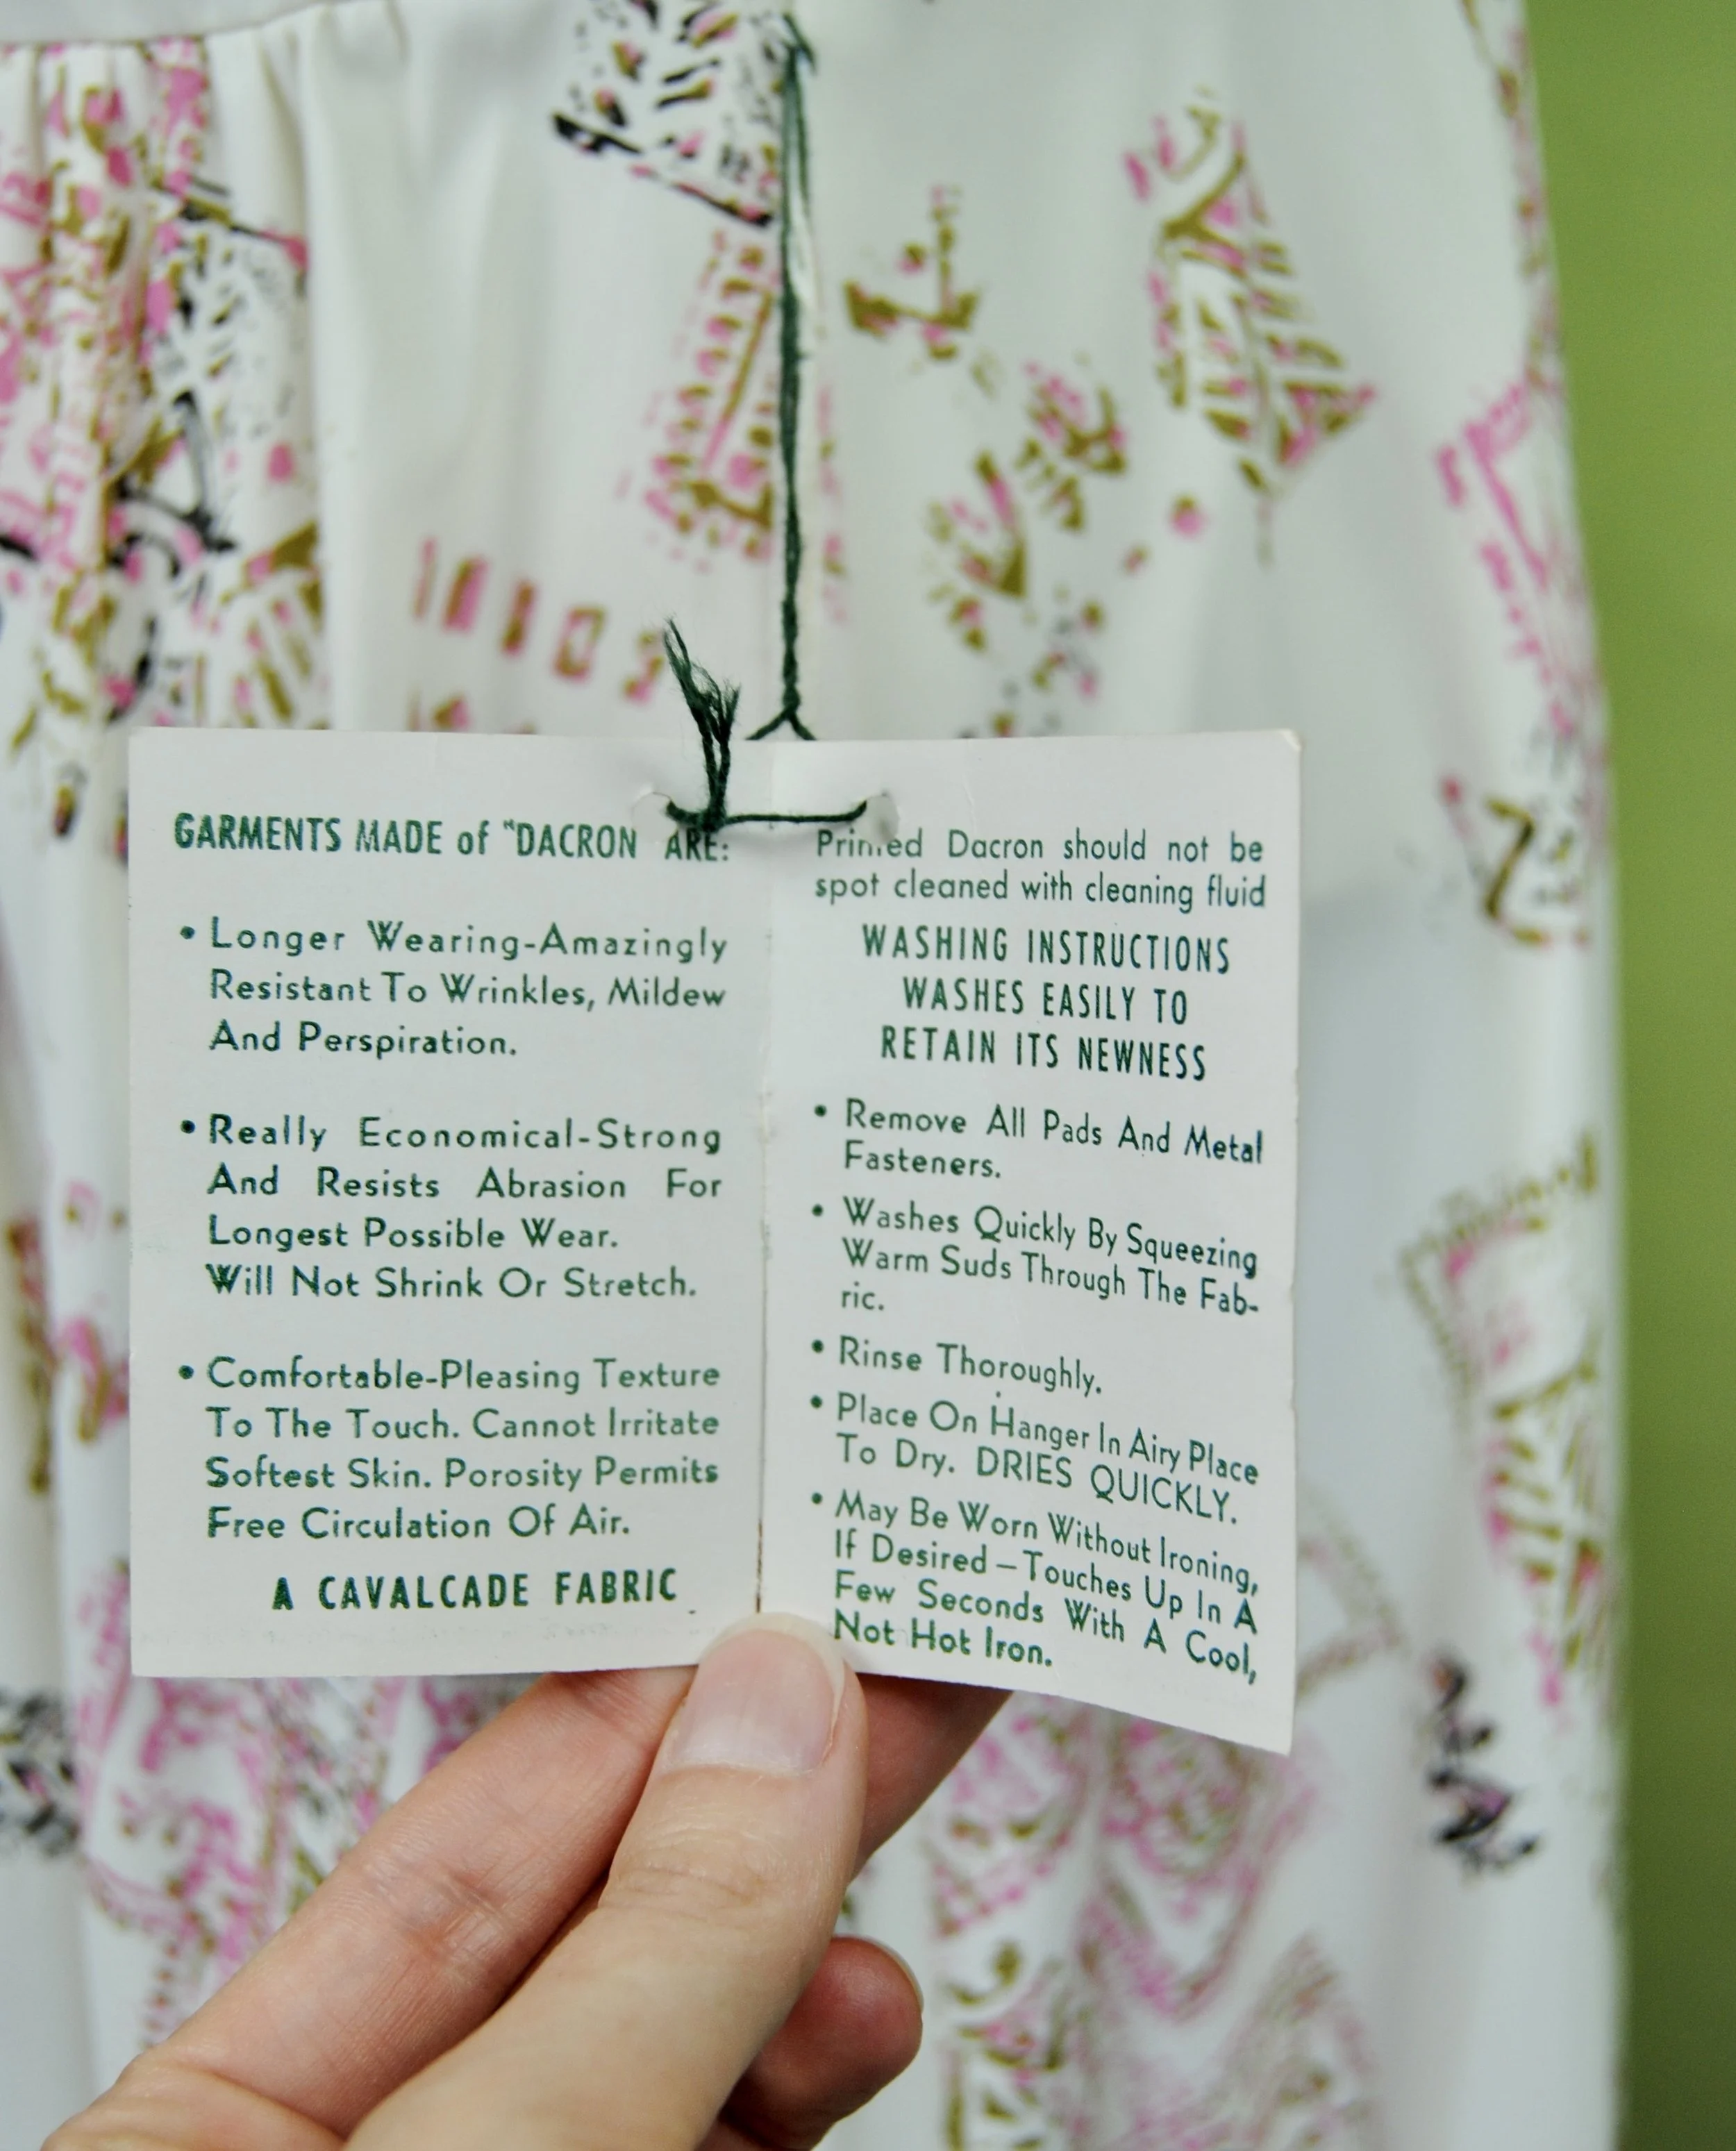 GARMENTS MADE of "DACRON ARE:
• Longer Wearing-Amazingly
Resistant To Wrinkles, Mildew
And Perspiration.
• Really Economical-Strong
And Resists Abrasion For
Longest Possible Wear.
Will Not Shrink Or Stretch.
• Comfortable-Pleasing Texture
To The Touch. Cannot Irritate
Softest Skin. Porosity Permits
Free Circulation Of Air.
A CAVALCADE FABRIC
Printed Dacron should not be
spot cleaned with cleaning fluid
WASHING INSTRUCTIONS
WASHES EASILY TO
RETAIN ITS NEWNESS
• Remove All Pads And Metal
Fasteners.
• Washes Quickly By Squeezing
Warm Suds Through The Fab-
ric.
• Rinse Thoroughly.
• Place On Hanger In Airy Place
To Dry. DRIES QUICKLY.
• May Be Worn Without Ironing,
If Desired – Touches Up In A
Few Seconds With A Cool,
Not Hot Iron.